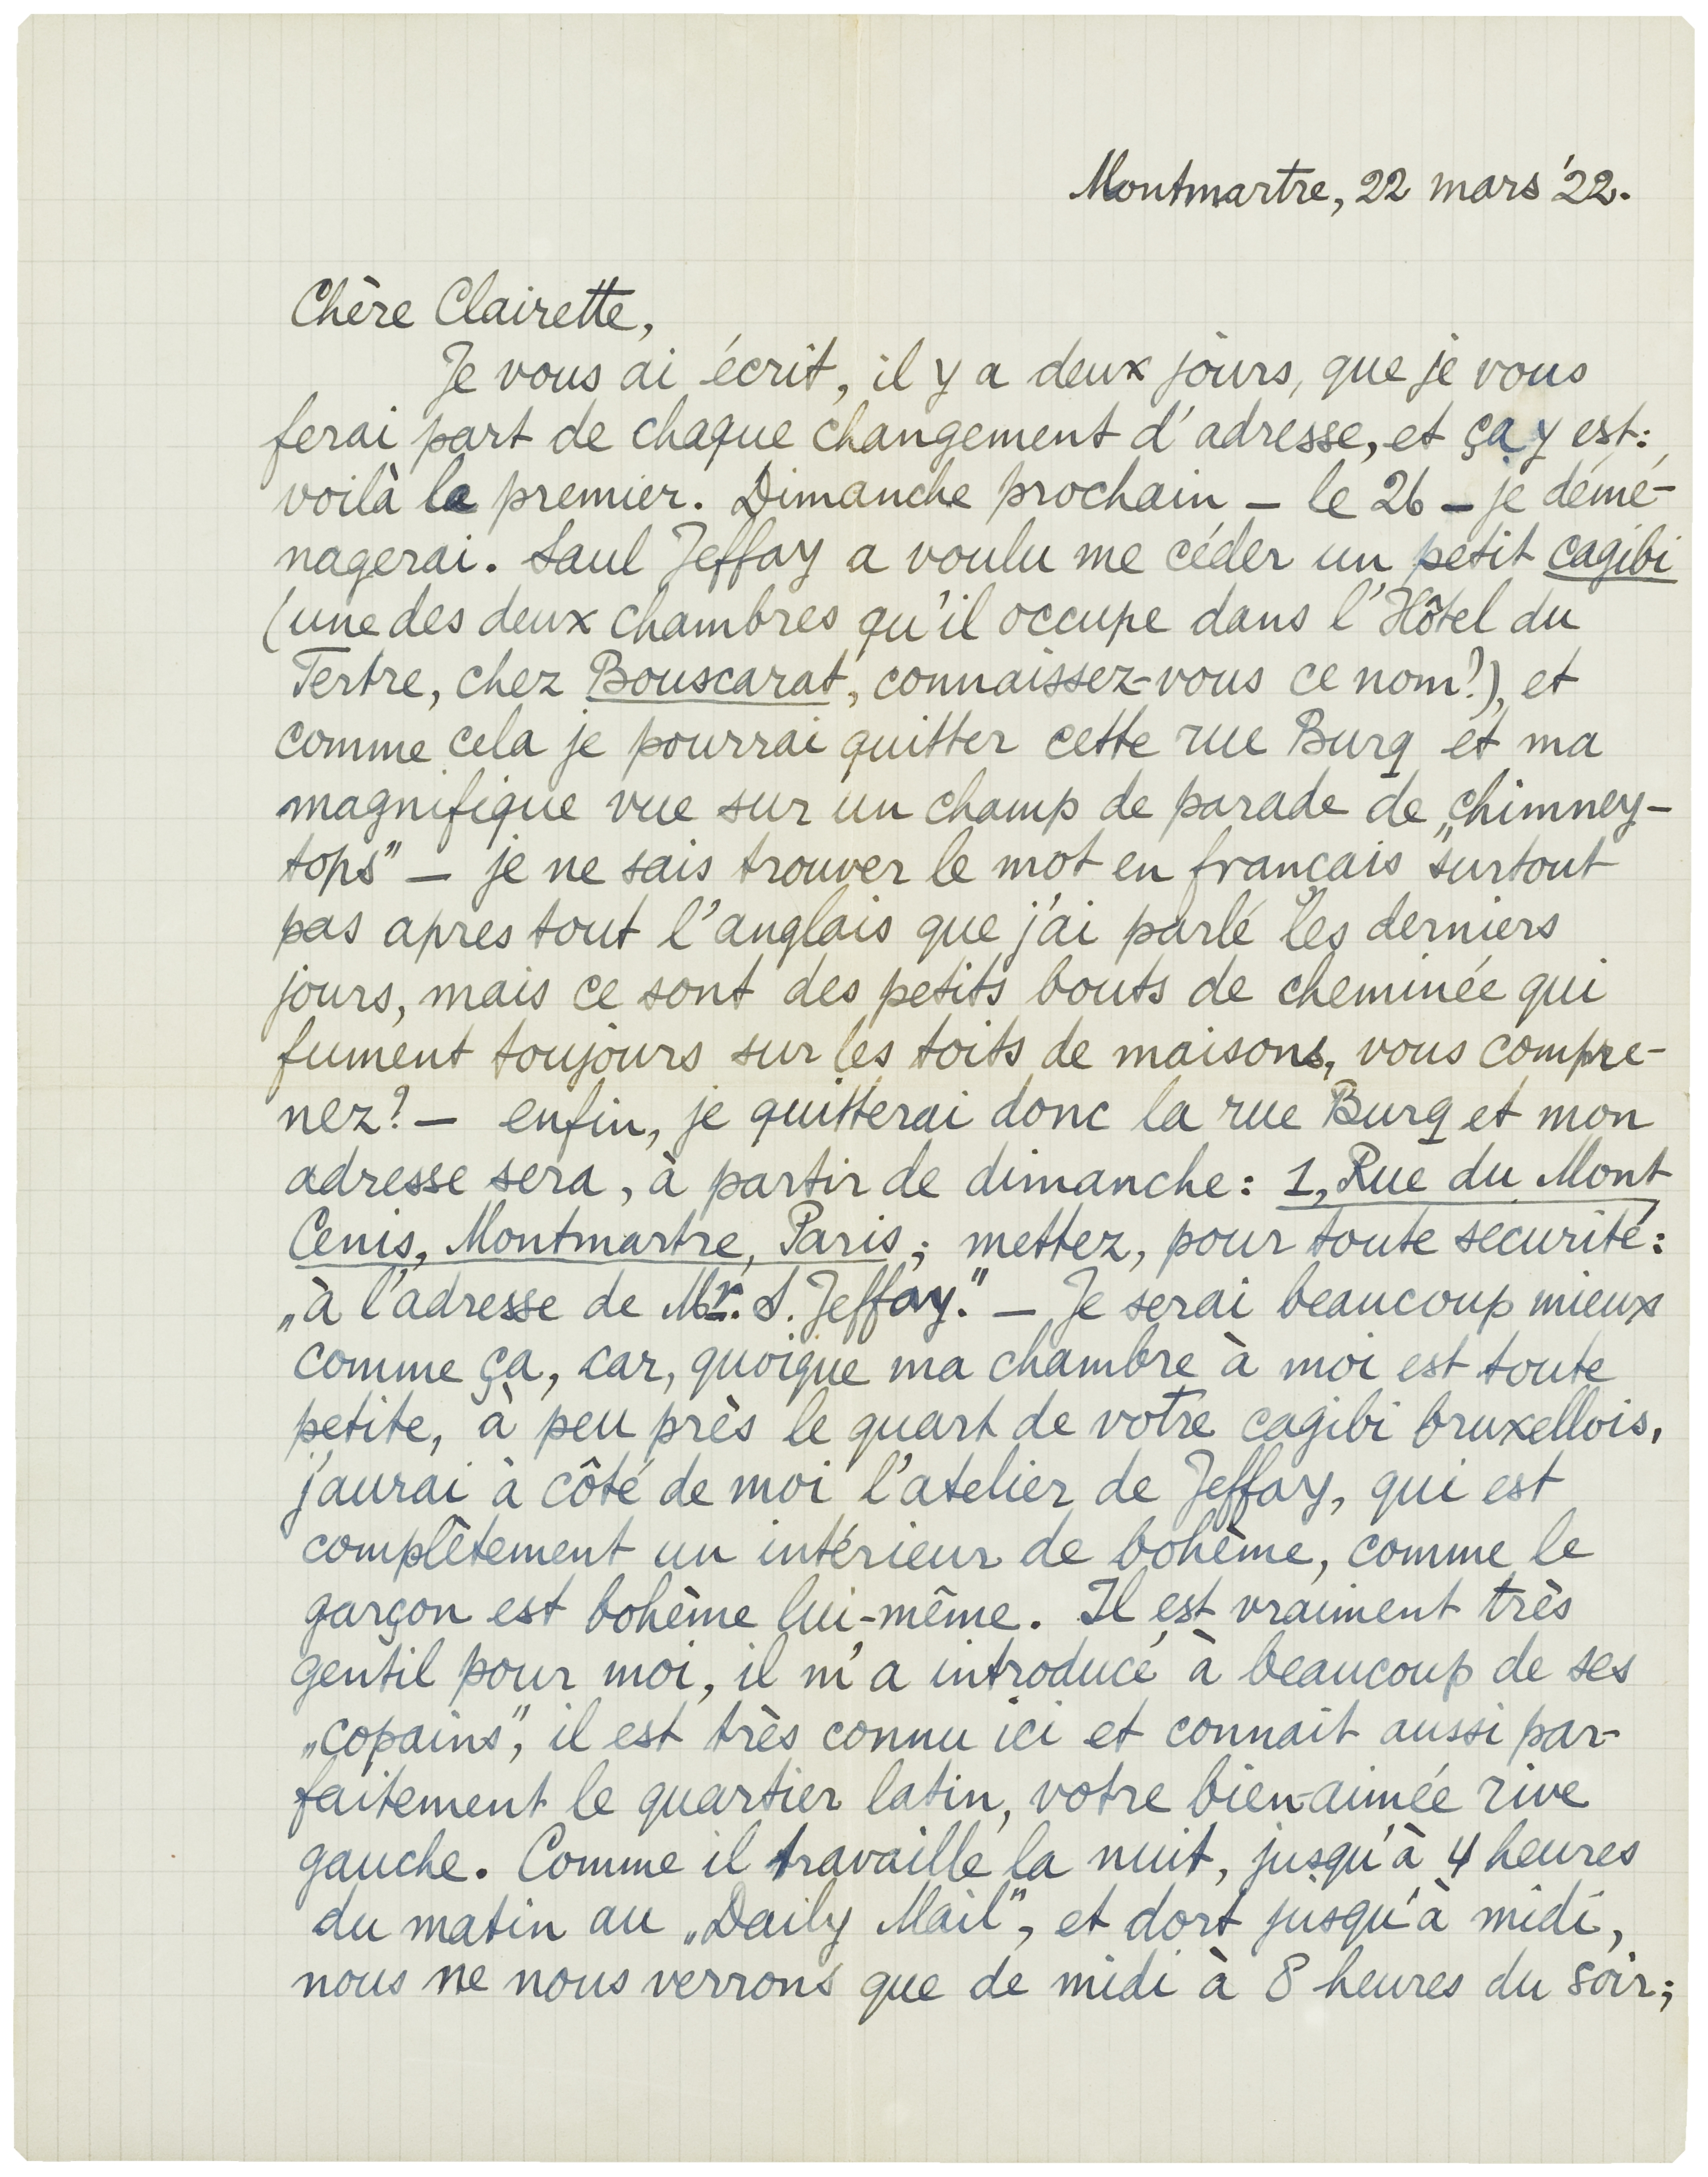 Montmartre, 22 mars '22.
Chère Clairette,
Je vous ai écrit, il y a deux jours, que je vous
ferai part de chaque changement d'adresse, et ça y est:
voilà le premier. Dimanche prochain – le 26 – je démé-
nagerai. Saul Jeffay a voulu me céder un petit cagibi
(une des deux chambres qu'il occupe dans l'Hôtel du
Tertre, chez Bouscarat, connaissez-vous ce nom?), et
comme cela je pourrai quitter cette rue Burq et ma
magnifique vue sur un champ de parade de „chimney-
tops" – je ne sais trouver le mot en français surtout
pas apres tout l'anglais que j'ai parlé les derniers
jours, mais ce sont des petits bouts de cheminée qui
fument toujours sur les toits de maisons, vous compre-
nez? – enfin, je quitterai donc la rue Burq et mon
adresse sera, à partir de dimanche: 1, Rue du Mont
Cenis, Montmartre, Paris; mettez, pour toute sécurité:
„à l'adresse de Mr. S. Jeffay." – Je serai beaucoup mieux
comme ça, car, quoique ma chambre à moi est toute
petite, à peu près le quart de votre cagibi bruxellois,
j'aurai à côté de moi l'atelier de Jeffay, qui est
complètement un intérieur de bohème, comme le
garçon est bohème lui-même. Il est vraiment très
gentil pour moi, il m'a introducé à beaucoup de ses
„copains", il est très connu ici et connait aussi par-
faitement le quartier latin, votre bien-aimée rive
gauche. Comme il travaille la nuit, jusqu'à 4 heures
du matin au „Daily Mail", et dort jusqu'à midi,
nous ne nous verrons que de midi à 8 heures du soir;